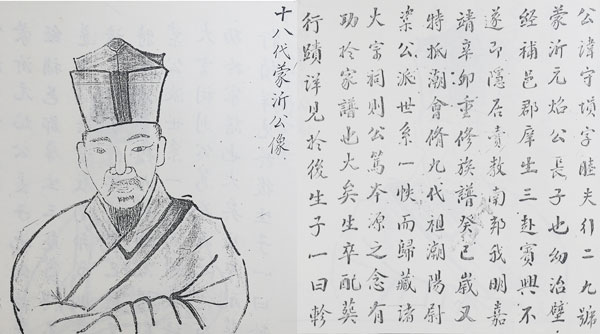 公諱守字睦夫行二九號
蒙沂元焰公長子也幼治壁
經補邑郡庠生三赴賓興不
遂即隱居責教南郭我明嘉
靖辛卯重修族譜癸巳歲又
特抵潮會脩九代祖潮陽尉
柒公派世系一帙而歸藏諸
大宗祠則公篤本源之念有
功於家譜也大矣生卒配葬
行蹟詳見於後生子一曰
十八代蒙沂公像